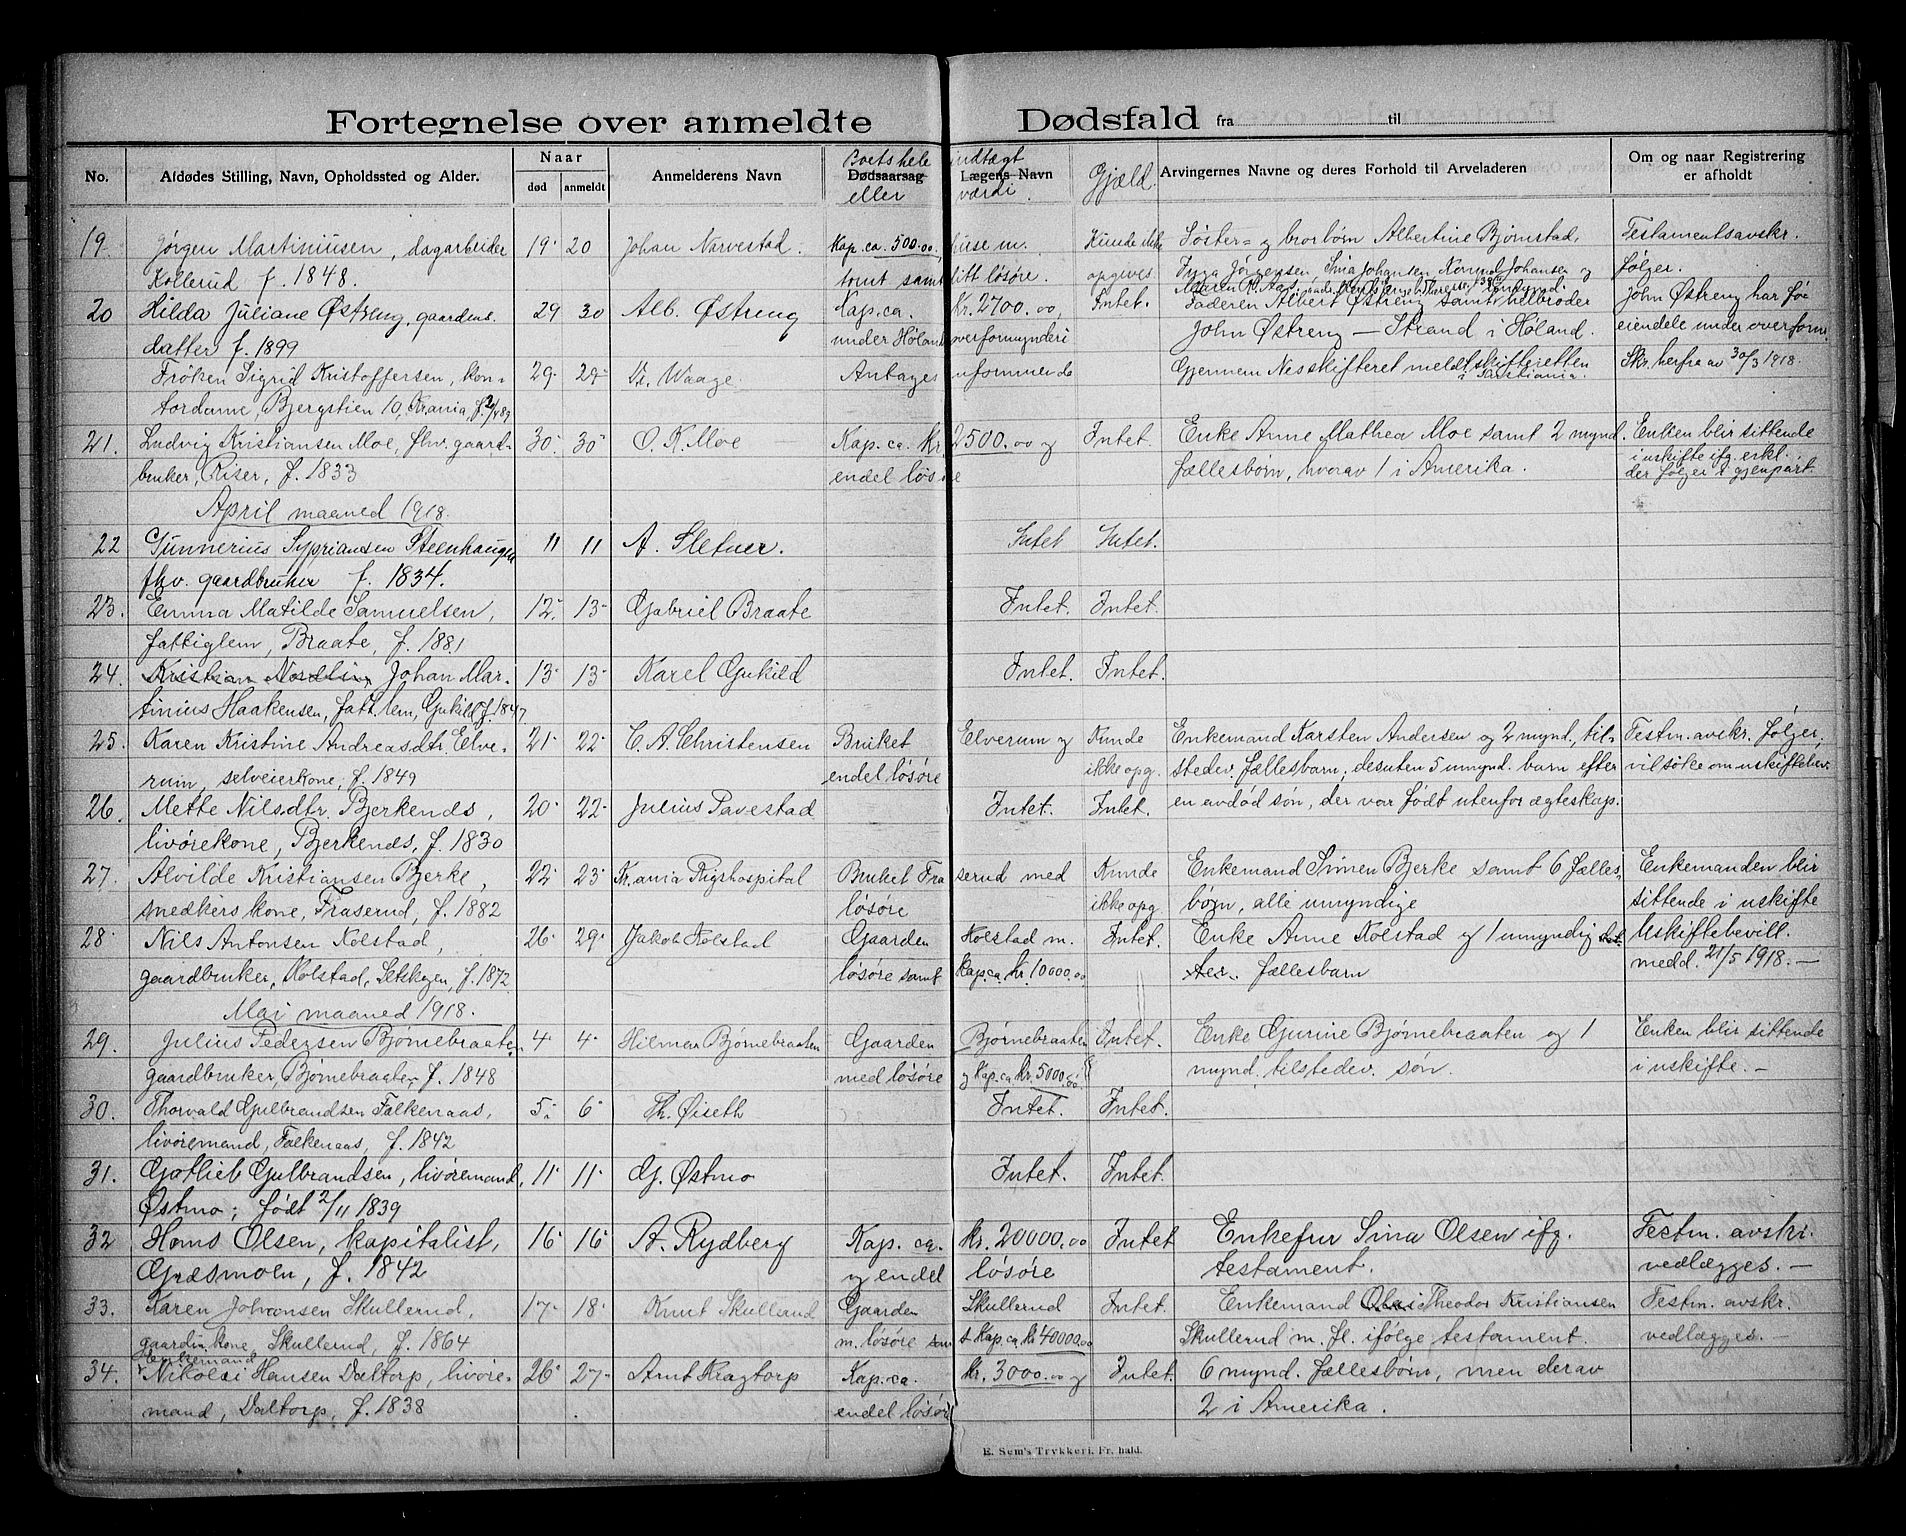 Fortegnelse over anmeldte Dødsfald fra til
No. Afdødes Stilling, Navn, Opholdssted og Alder. Naar død anmeldt Anmelderens Navn Dødsaarsag Boets hele eller Lægens Navn indtægt værdi. Gjæld. Arvingernes Navne og deres Forhold til Arveladeren Om og naar Registrering er afholdt
19. Jørgen Martiniusen, dagarbeider 19 20 Johan Narvestad. Kap. ca. 500.00, huse m. Kunde ikke Søster- og brorbørn Albertine Bjørnstad, Testamentsavskr.
Kollerud f. 1848. tomt samt litt løsøre. opgives Inga Jørgensen, Sina Johansen Konrad Johansen og følger.
20 Hilda Juliane Østreng, gaardens 29 30 Alb. Østreng Kap. ca. Kr. 2700.00, Intet. Faderen Albert Østreng samt helbroder John Østreng har sine
datter f. 1899 under Høland overformynderi John Østreng – Strand i Høland. eiendele under overform.
Frøken Sigrid Kristoffersen, kon- 29 29 Kr. Waage. Antages uformuende Gjennem Nes skifteret meldt skifteretten i Kristiania. Skr. herfra av 30/3 1918.
tordame, Bjergstien 10, Krania, f.
21. Ludvig Kristiansen Moe, fhv. gaard- 30 30 O. K. Moe Kap. ca. kr. 2500.00 og Intet. Enke Anne Mathea Moe samt 2 mynd. Enken blir sittende
bruker, Riser, f. 1833 endel løsøre fællesbørn, hvorav 1 i Amerika. i uskifte ifg. erkl.
der følger i gjenpart.
April maaned 1918.
22 Gunnerius Sypriansen Steenhaugen 11 11 A. Sletner. Intet Intet.
fhv. gaardbruker f. 1834.
23. Emma Matilde Samuelsen, 12 13 Gabriel Braate Intet. Intet.
fattiglem, Braate, f. 1881
24. Kristian Nordlin Johan Mar- 13 13 Karel Gukild Intet. Intet.
tinius Haakensen, fatt. lem, Gukild f. 1847
25. Karen Kristine Andreasdtr. Elve- 21 22 C. A. Christensen Bruket Elverum og Kunde Enkemand Karsten Andersen og 2 mynd., til- Testm. avskr. følger,
rum, selveierkone, f. 1849 endel løsøre ikke opg. stedev. fællesbarn, desuten 5 umynd. barn efter vil søke om uskiftebev.
26. Mette Nilsdtr. Bjerkends, 20 22 Julius Pavestad Intet. Intet. en avdød søn, der var født utenfor ægteskap.
livørekone, Bjerkends, f. 1830
27. Alvilde Kristiansen Bjerke, 22 23 Kr.ania Rigshospital Bruket Fraserud med Kunde Enkemand Simen Bjerke samt 6 fælles- Enkemanden blir
snedkers kone, Fraserud, f. 1882 løsøre ikke opg. børn, alle umyndige sittende i uskifte
28. Nils Antonsen Kolstad, 26 29 Jakob Kolstad Gaarden Kolstad m. Intet. Enke Anne Kolstad og 1 umyndig Uskiftebevill.
gaardbruker, Kolstad, Setskogen, f. 1872 løsøre samt kap. ca. kr. 10000.00 fællesbarn medd. 21/5 1918. –
Mai maaned 1918.
29. Julius Pedersen Bjørnebraaten 4 4 Hilmar Bjørnebraaten Gaarden Bjørnebraaten Intet. Enke Gurine Bjørnebraaten og 1 Enken blir sittende
gaardbruker, Bjørnebraaten f. 1848 med løsøre og Kap. ca kr. 5000.00 mynd. tilstedev. søn. i uskifte. –
30. Thorvald Gulbrandsen Falkenaas, 5 6 Th. Øiseth Intet. Intet.
livøremand, Falkenaas, f. 1842
31. Gotlieb Gulbrandsen, livøremand, 11 11 G. Østmo Intet. Intet.
Østmo; født 2/11 1839
32 Hans Olsen, kapitalist, 16 16 A. Rydberg Kap. ca. kr. 20000.00 Intet Enkefru Sina Olsen ifg. Testm. avskr.
Græsmoen, f. 1842 og endel løsøre testament. vedlægges. –
33. Karen Johansen Skullerud, 17 18 Knut Skullerud Gaarden Skullerud Intet. Enkemand Theodor Kristiansen Testm. avskr.
gaardm. kone, Skullerud, f. 1864 m. løsøre samt Kap. ca kr 40000.00 Skullerud m. fl. ifølge testament. vedlægges. –
Enkemand
34. Nikolai Hansen Daltorp, livøre- 26 27 Amt Kragtorp Kap. ca. kr. 3000.00 og Intet. 6 mynd. fællesbørn, men derav
mand, Daltorp, f. 1838 endel løsøre 2 i Amerika.
E. Sem's Trykkeri, Fr. hald.